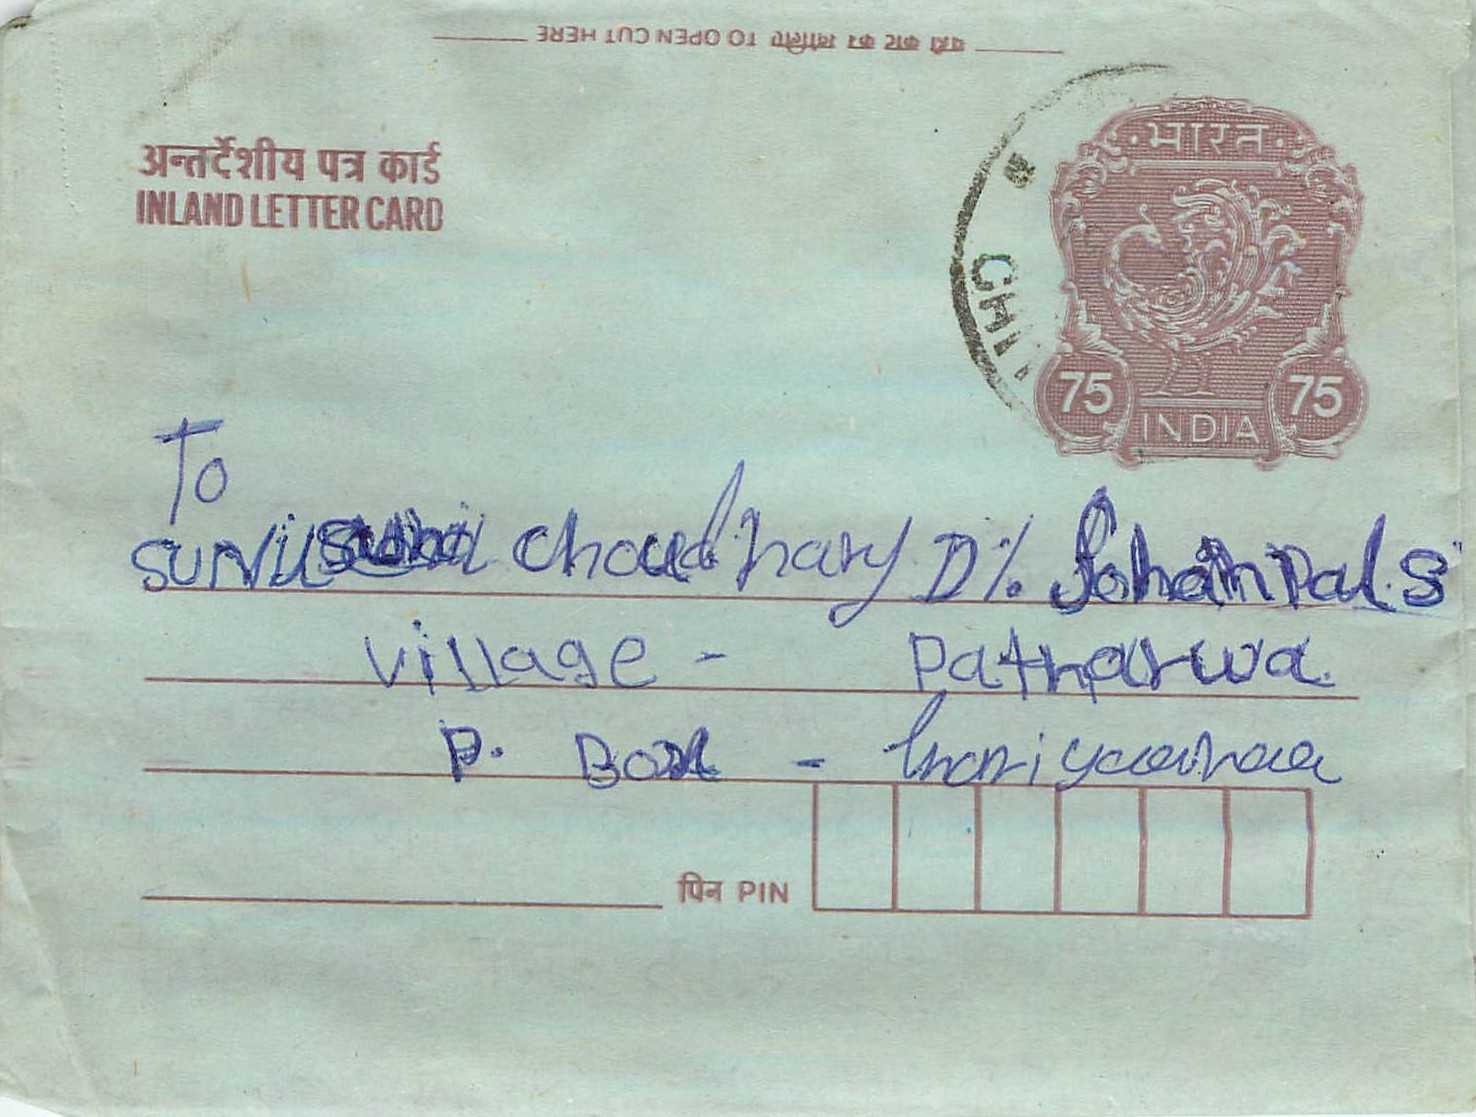 यहाँ काट कर खोलिए TO OPEN CUT HERE
अन्तर्देशीय पत्र कार्ड
INLAND LETTER CARD
भारत
75 75
INDIA
CHI
To
SUNIL Choudhary D/. Sohanpal.S
Village - Patharwa.
P. Box -
पिन PIN